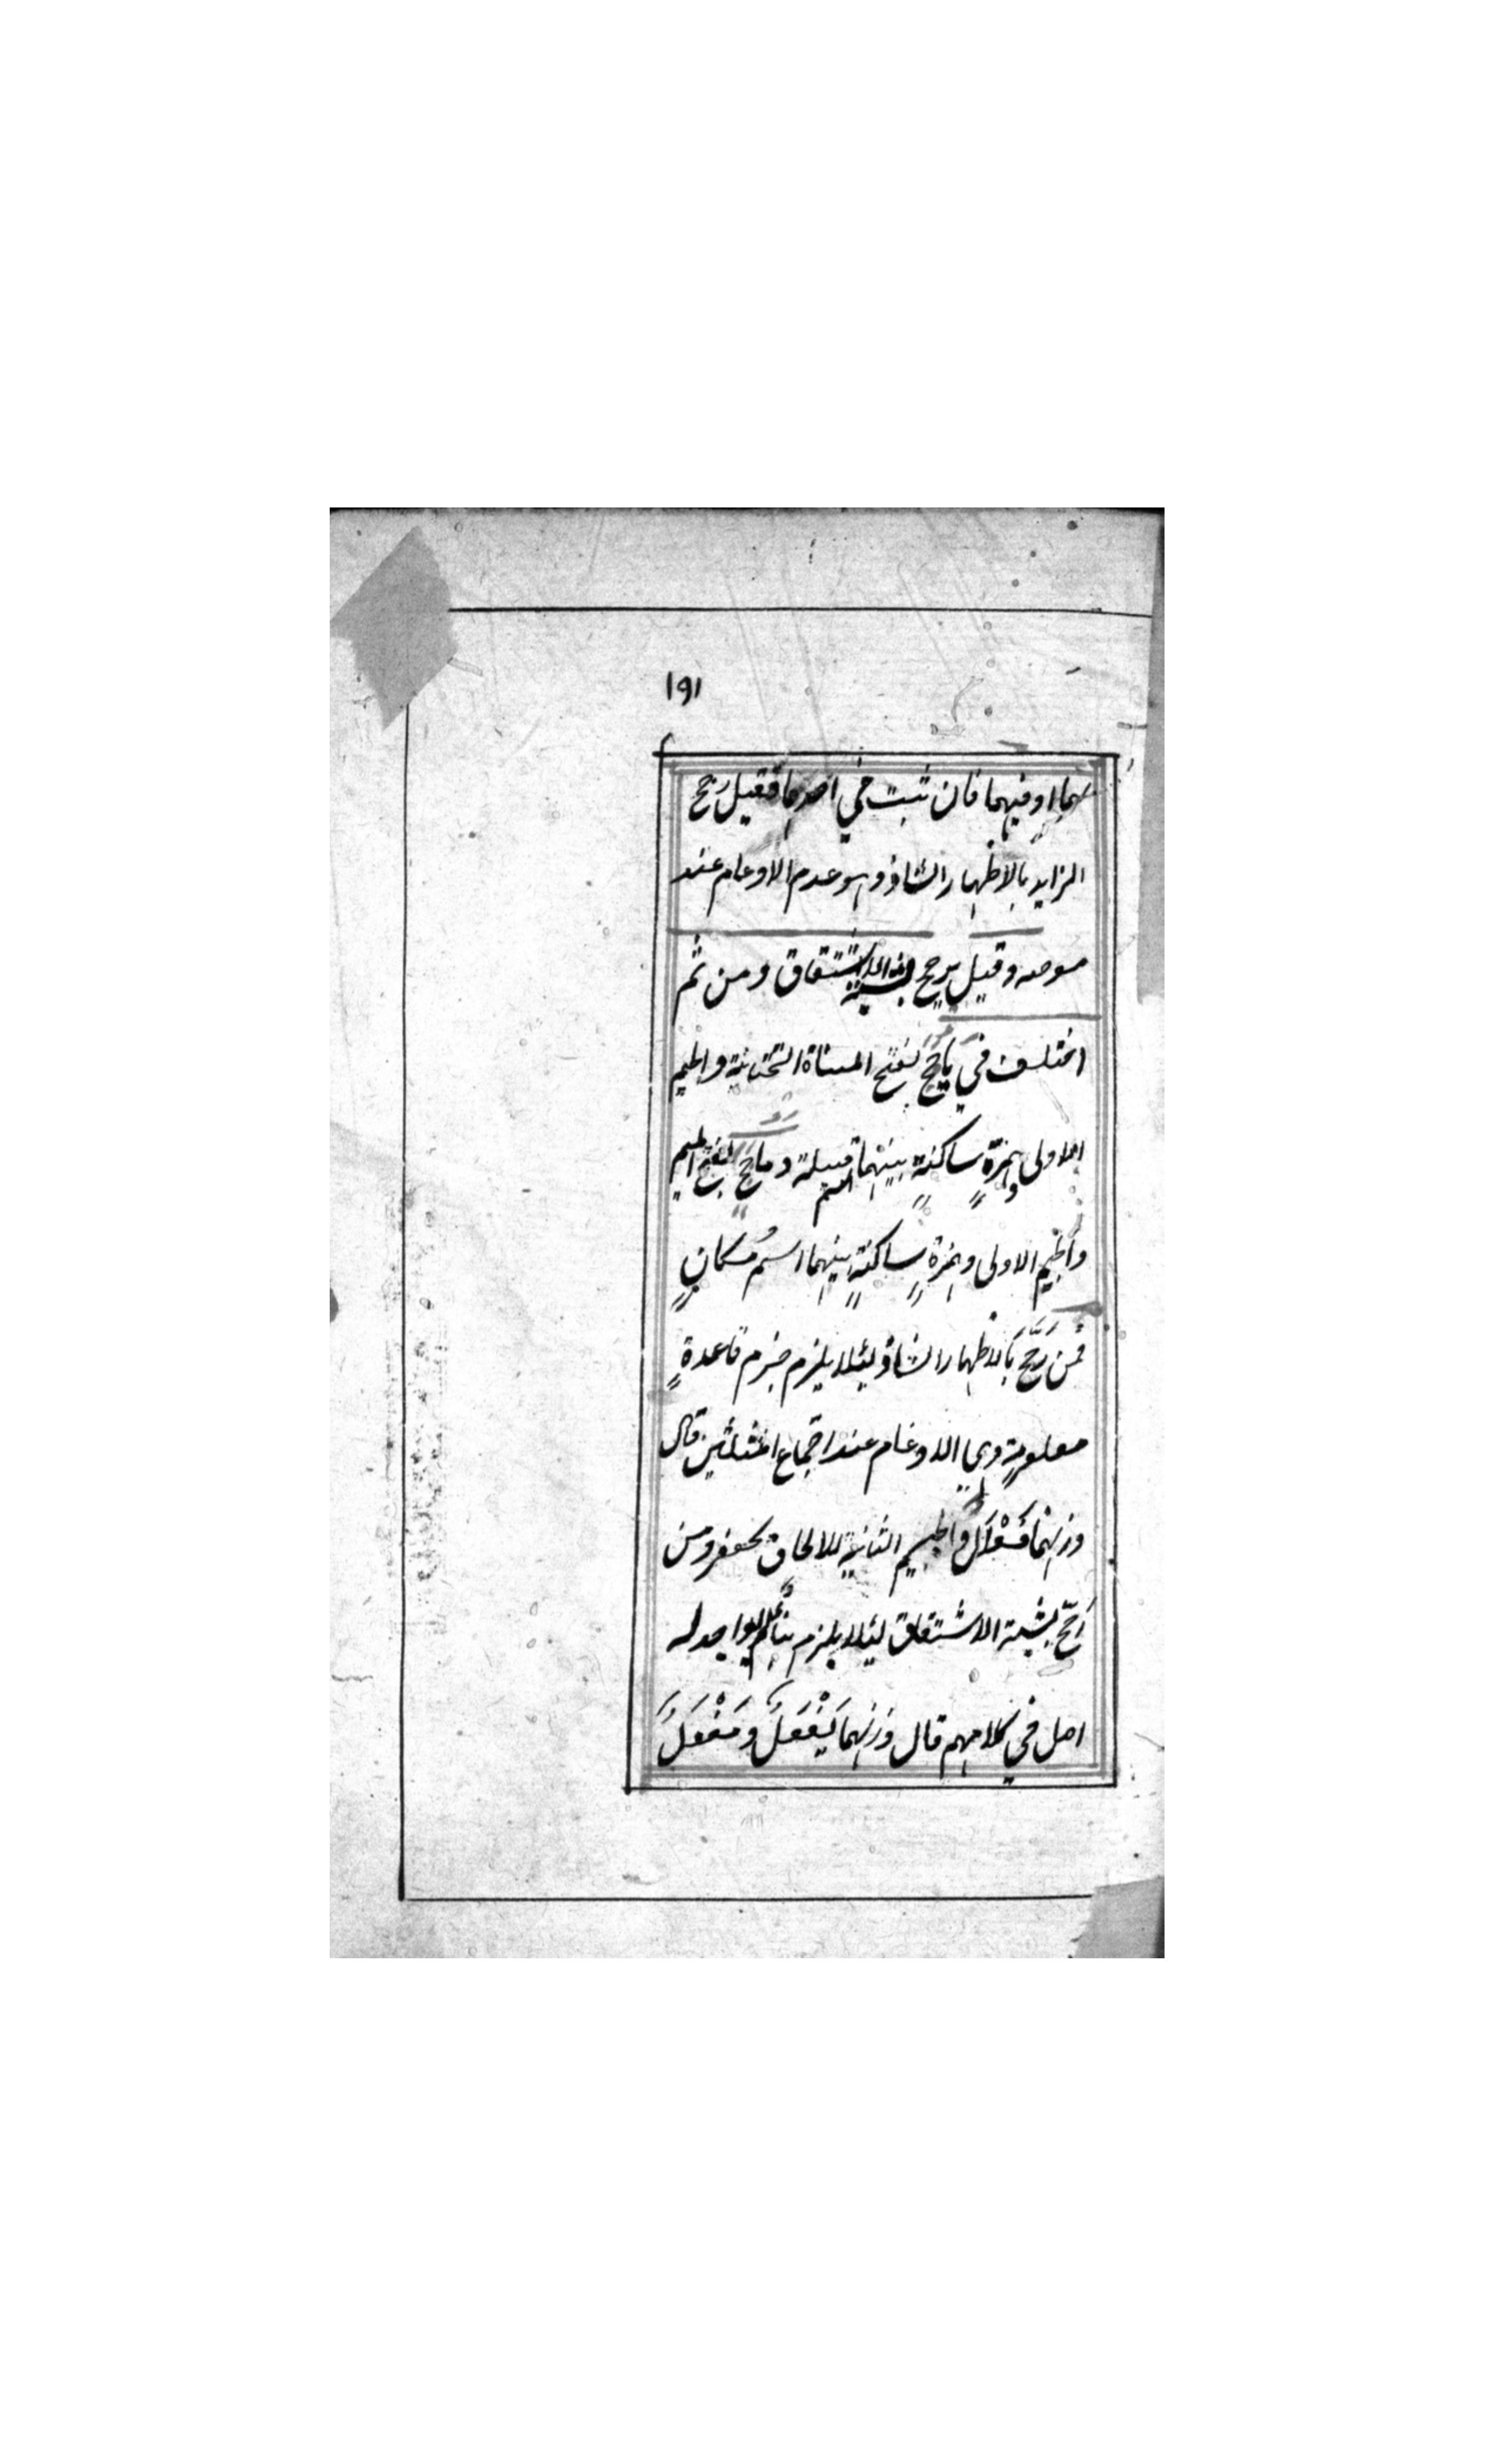 ١٩١
بهما او فيهما فان ثبت في احدهما فقيل رجح
الزايد بالاظهار الشاذ وهو عدم الادغام عند
موجبه وقيل يرجح بشبهة الاشتقاق ومن ثم
اختلف في يَأجَج بفتح المثناة التحتانية والجيم
الاولى وهمزةٍ ساكنةٍ بينهما اسم قبيلة ومأجج بفتح الميم
والجيم الاولى وهمزةٍ ساكنةٍ بينهما اسم مكانٍ
فمن رَجَّحَ بالاظهار الشاذ لئلا يلزم خرم قاعدةٍ
معلومةٍ وهي الادغام عند اجتماع المثلين قال
وزنهما فَعْلَلٌ والجيم الثانية للالحاق بجعفر ومن
رجّح بشبهة الاشتقاق لئلا يلزم بناء لم يوجد له
اصل في كلامهم قال وزنهما يَفْعَلُ ومَفْعَلٌ